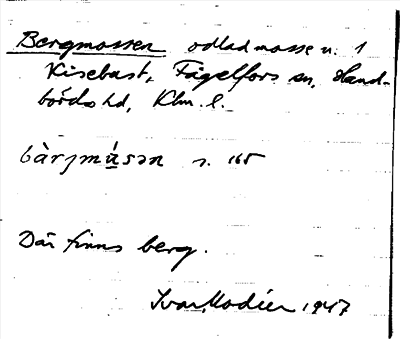 Bergmossen odlad mosse u. 1
Kisebast, Fågelfors sn, Hand-
börds hd, Klm. l.
bàrjmùsən s. 165
Där finns berg.
Ivar Modéer 1947